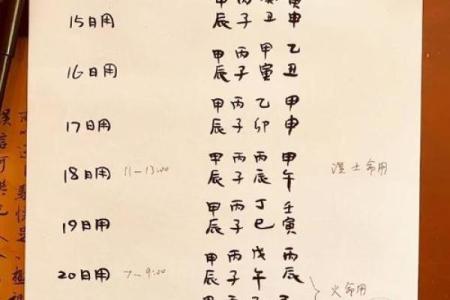 甲 丙 癸 寅
15日用
辰 子 丑 申
甲 丙 甲 乙
16日用
辰 子 寅 丑
甲 丙 乙 甲
17日用
辰 子 卯 申
甲 丙 丙 甲
18日用 11-13:00 湿土命用
辰 子 辰 午
甲 丙 丁 壬
19日用
辰 子 巳 寅
甲 丙 戊 丙
20日用 7-9:00
辰 子 午 辰
火命用
甲 丙